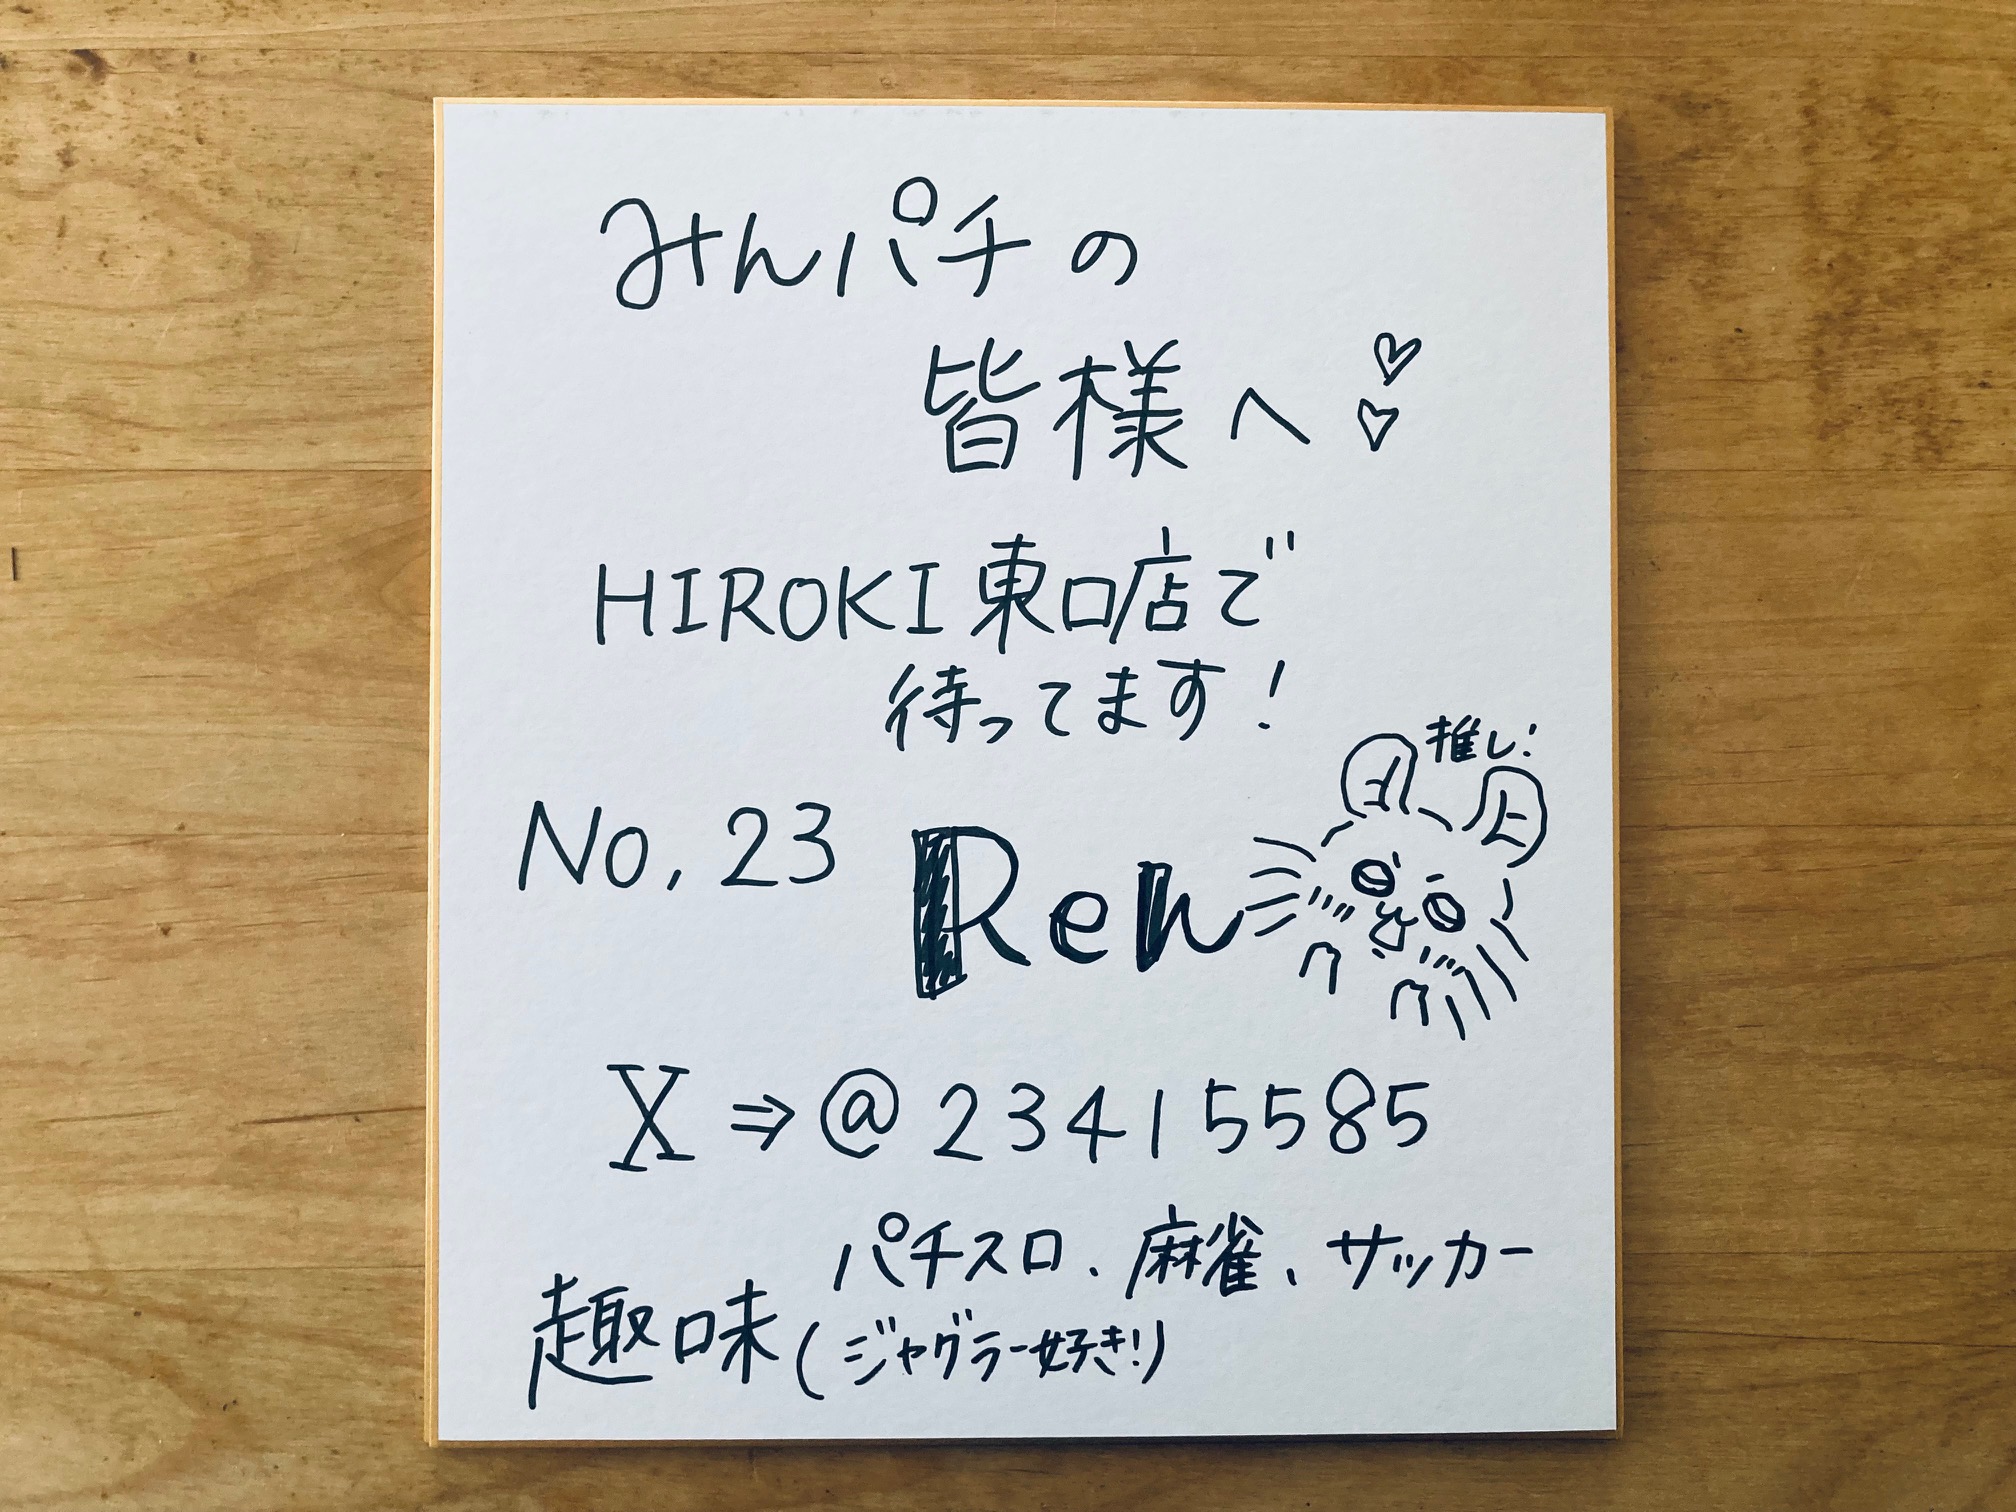 みんパチの
皆様へ♡♡
HIROKI東口店で
待ってます!
推し!
No, 23 Ren
X⇒@23415585
パチスロ、麻雀、サッカー
趣味(ジャグラー好き!)